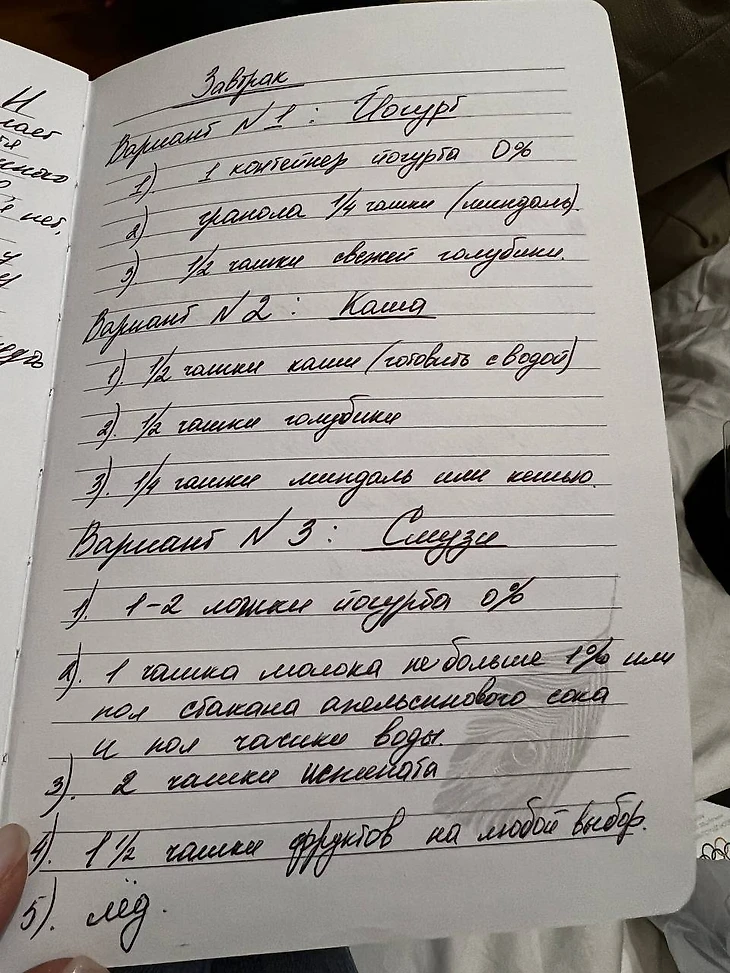 И
Завтрак
Вариант N 1 : Йогурт
1) 1 контейнер йогурта 0%
2) гранола 1/4 чашки (миндаль).
3) 1/2 чашки свежей голубики.
нет,
Вариант N 2 : Каша
1) 1/2 чашки каши (готовить с водой)
2). 1/2 чашки голубики
3). 1/4 чашки миндаль или кешью.
Вариант N 3 : Смузи
1). 1-2 ложки йогурта 0%
2). 1 чашка молока не больше 1% или
пол стакана апельсинового сока
и пол чашки воды.
3). 2 чашки шпината
4). 1 1/2 чашки фруктов на любой выбор.
5). лёд.